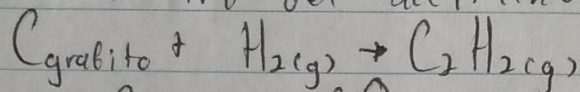 C grafito + H₂(g) → C₂H₂(g)